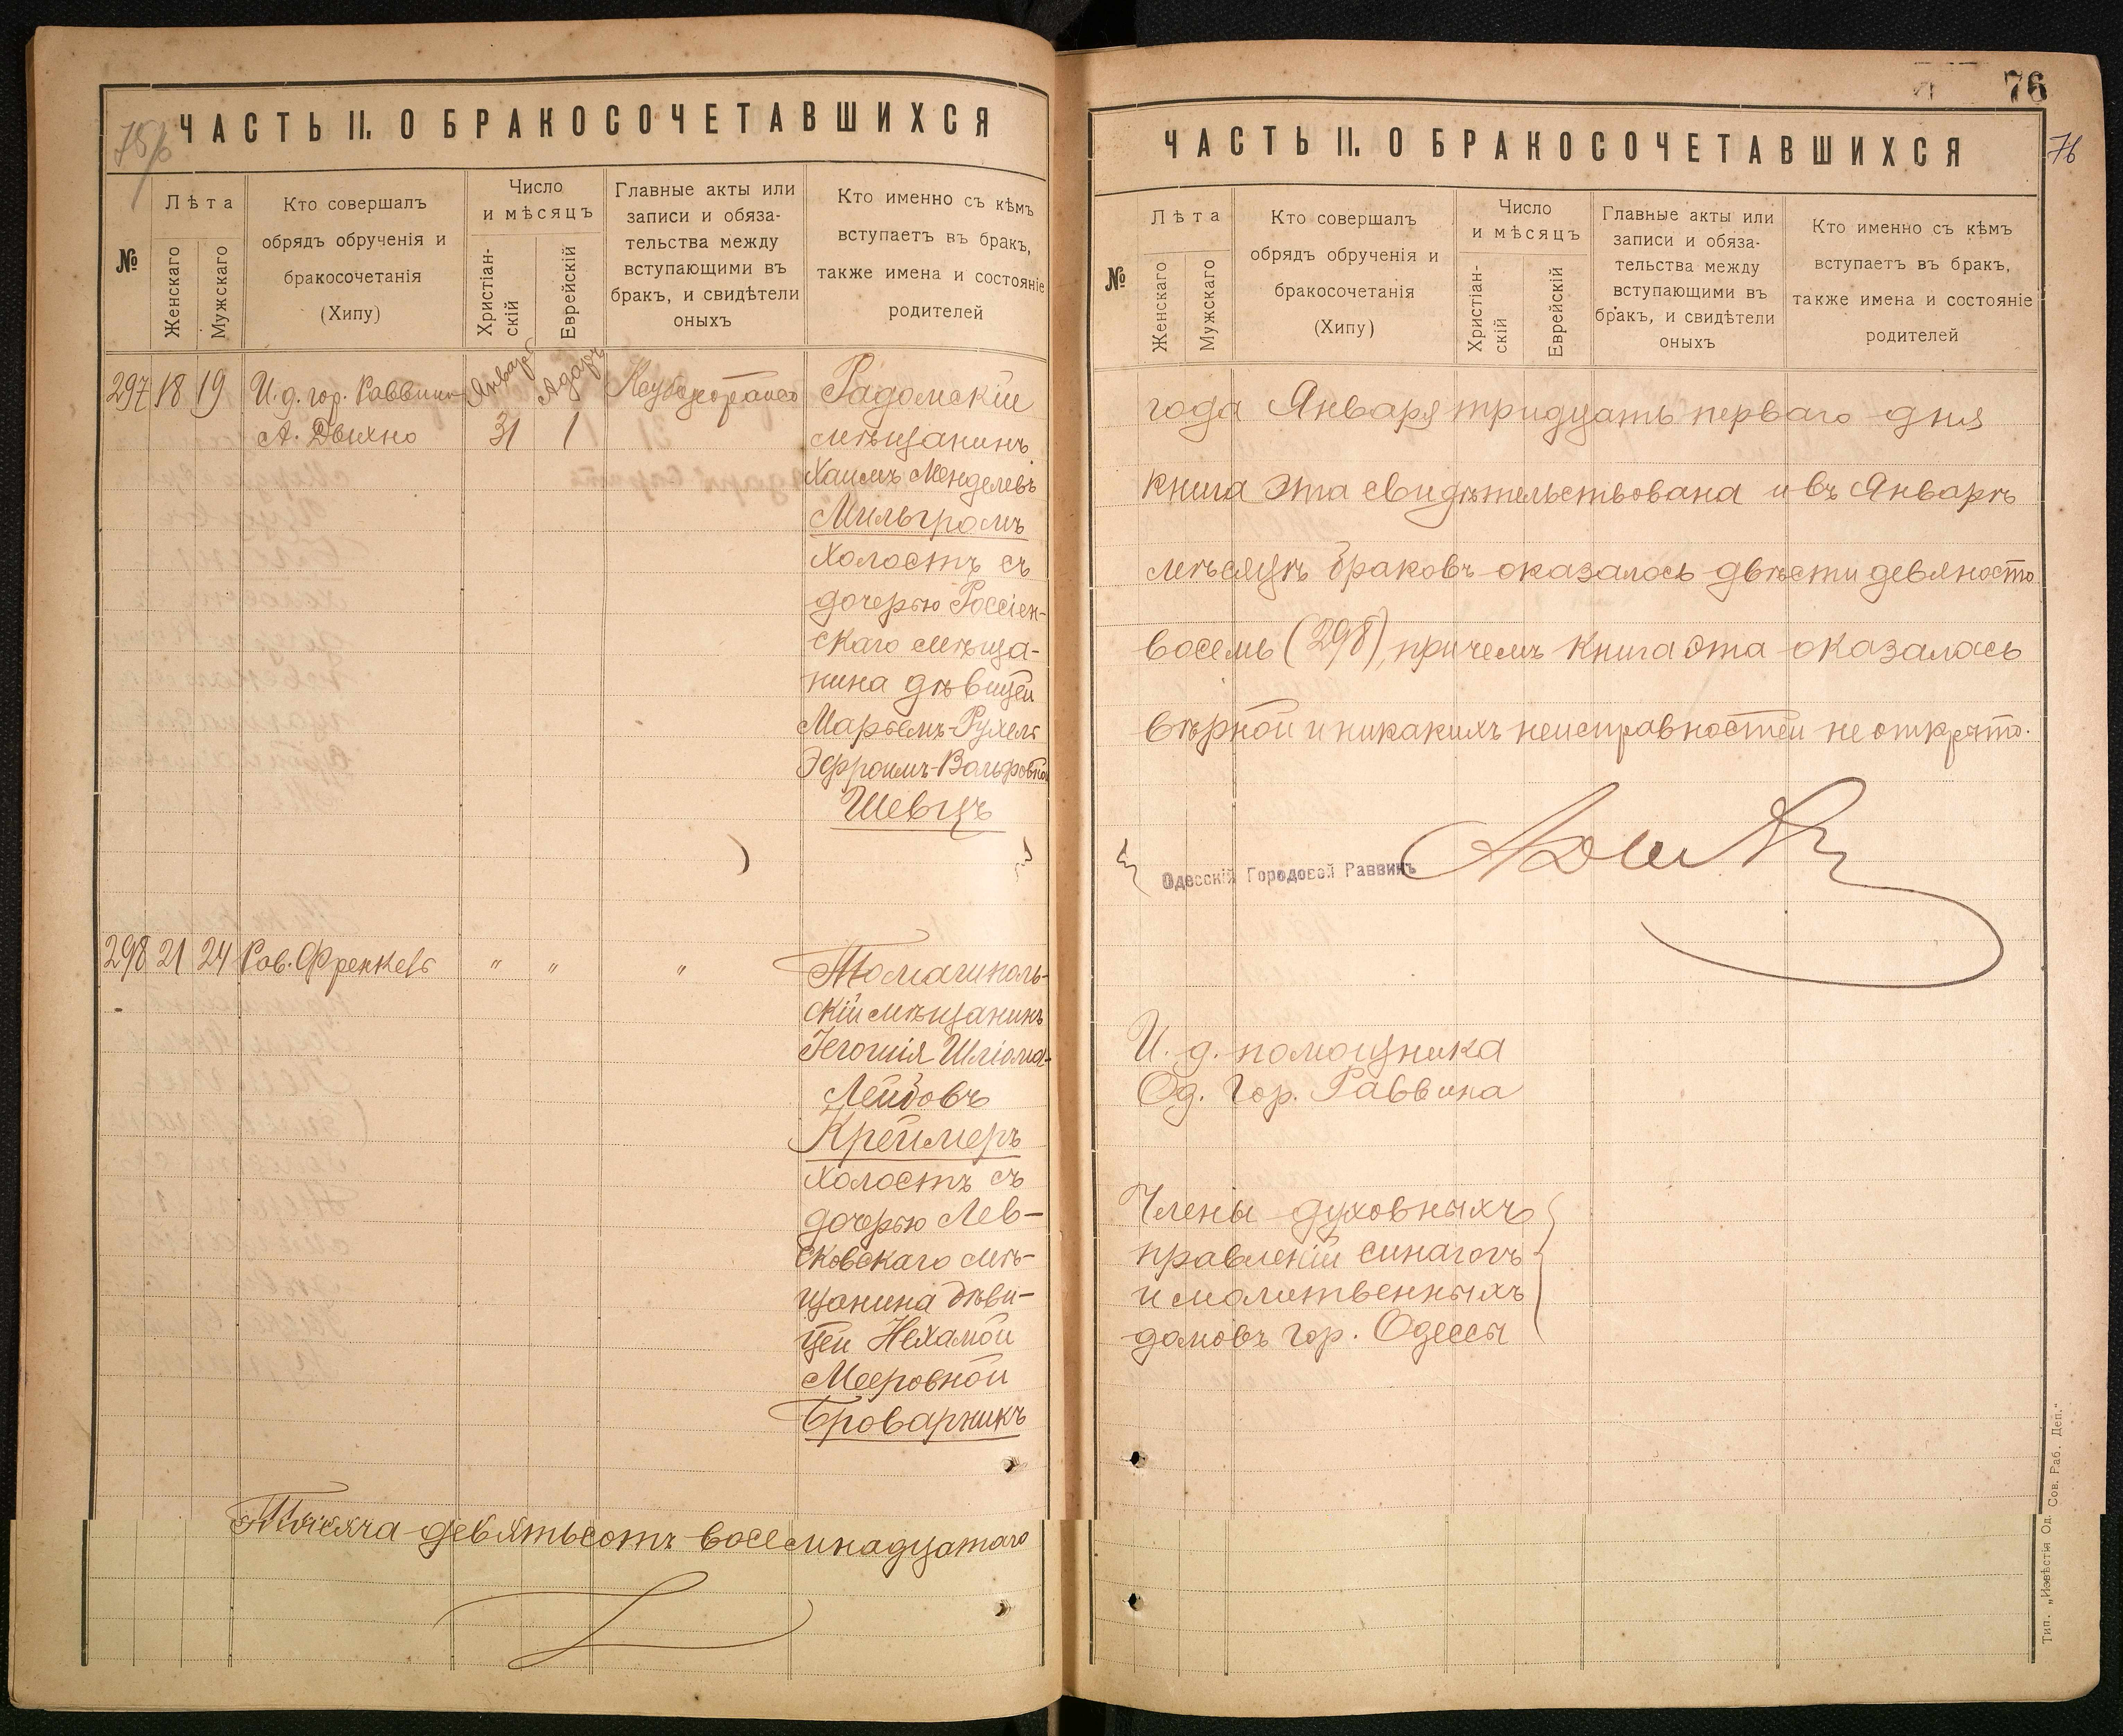 75/б
ЧАСТЬ II. О БРАКОСОЧЕТАВШИХСЯ
№
Лѣта
Женскаго
Мужскаго
Кто совершалъ
обрядъ обрученія и
бракосочетанія
(Хипу)
Число
и мѣсяцъ
Христіан-
скій
Еврейскій
Главные акты или
записи и обяза-
тельства между
вступающими въ
бракъ, и свидѣтели
оныхъ
Кто именно съ кѣмъ
вступаетъ въ бракъ,
также имена и состояніе
родителей
297 18 19 И. д. гор. Раввина Январь Адаръ Радомскій
А. Дыхно 31 1 мѣщанинъ
Хаимъ Менделевъ
Мильгромъ
холостъ съ
дочерью Россіен-
скаго мѣща-
нина дѣвицей
Марьемъ-Рухель
Эфроимъ-Вольфовной
Шевцъ
298 21 24 Рав. Френкель " " "
скій мѣщанинъ
Іегошія Шліома-
Лейбовъ
Креймеръ
холостъ съ
дочерью Лев-
ковскаго мѣ-
щанина дѣви-
цей Нехамой
Мееровной
Броварникъ
Тысяча девятьсотъ восемнадцатаго
76
76
ЧАСТЬ II. О БРАКОСОЧЕТАВШИХСЯ
№
Лѣта
Женскаго
Мужскаго
Кто совершалъ
обрядъ обрученія и
бракосочетанія
(Хипу)
Число
и мѣсяцъ
Христіан-
скій
Еврейскій
Главные акты или
записи и обяза-
тельства между
вступающими въ
бракъ, и свидѣтели
оныхъ
Кто именно съ кѣмъ
вступаетъ въ бракъ,
также имена и состояніе
родителей
года Января тридцать перваго дня
книга эта свидѣтельствована и въ Январѣ
мѣсяцѣ браковъ оказалось двѣсти девяносто
восемь (298), причемъ книга эта оказалась
вѣрной и никакихъ неисправностей не открыто.
Одесскій Городовой Раввинъ
И. д. помощника
Од. Гор. Раввина
Члены духовныхъ
правленій синагогъ
и молитвенныхъ
домовъ гор. Одессы
Тип. „Извѣстія Од. Сов. Раб. Деп."